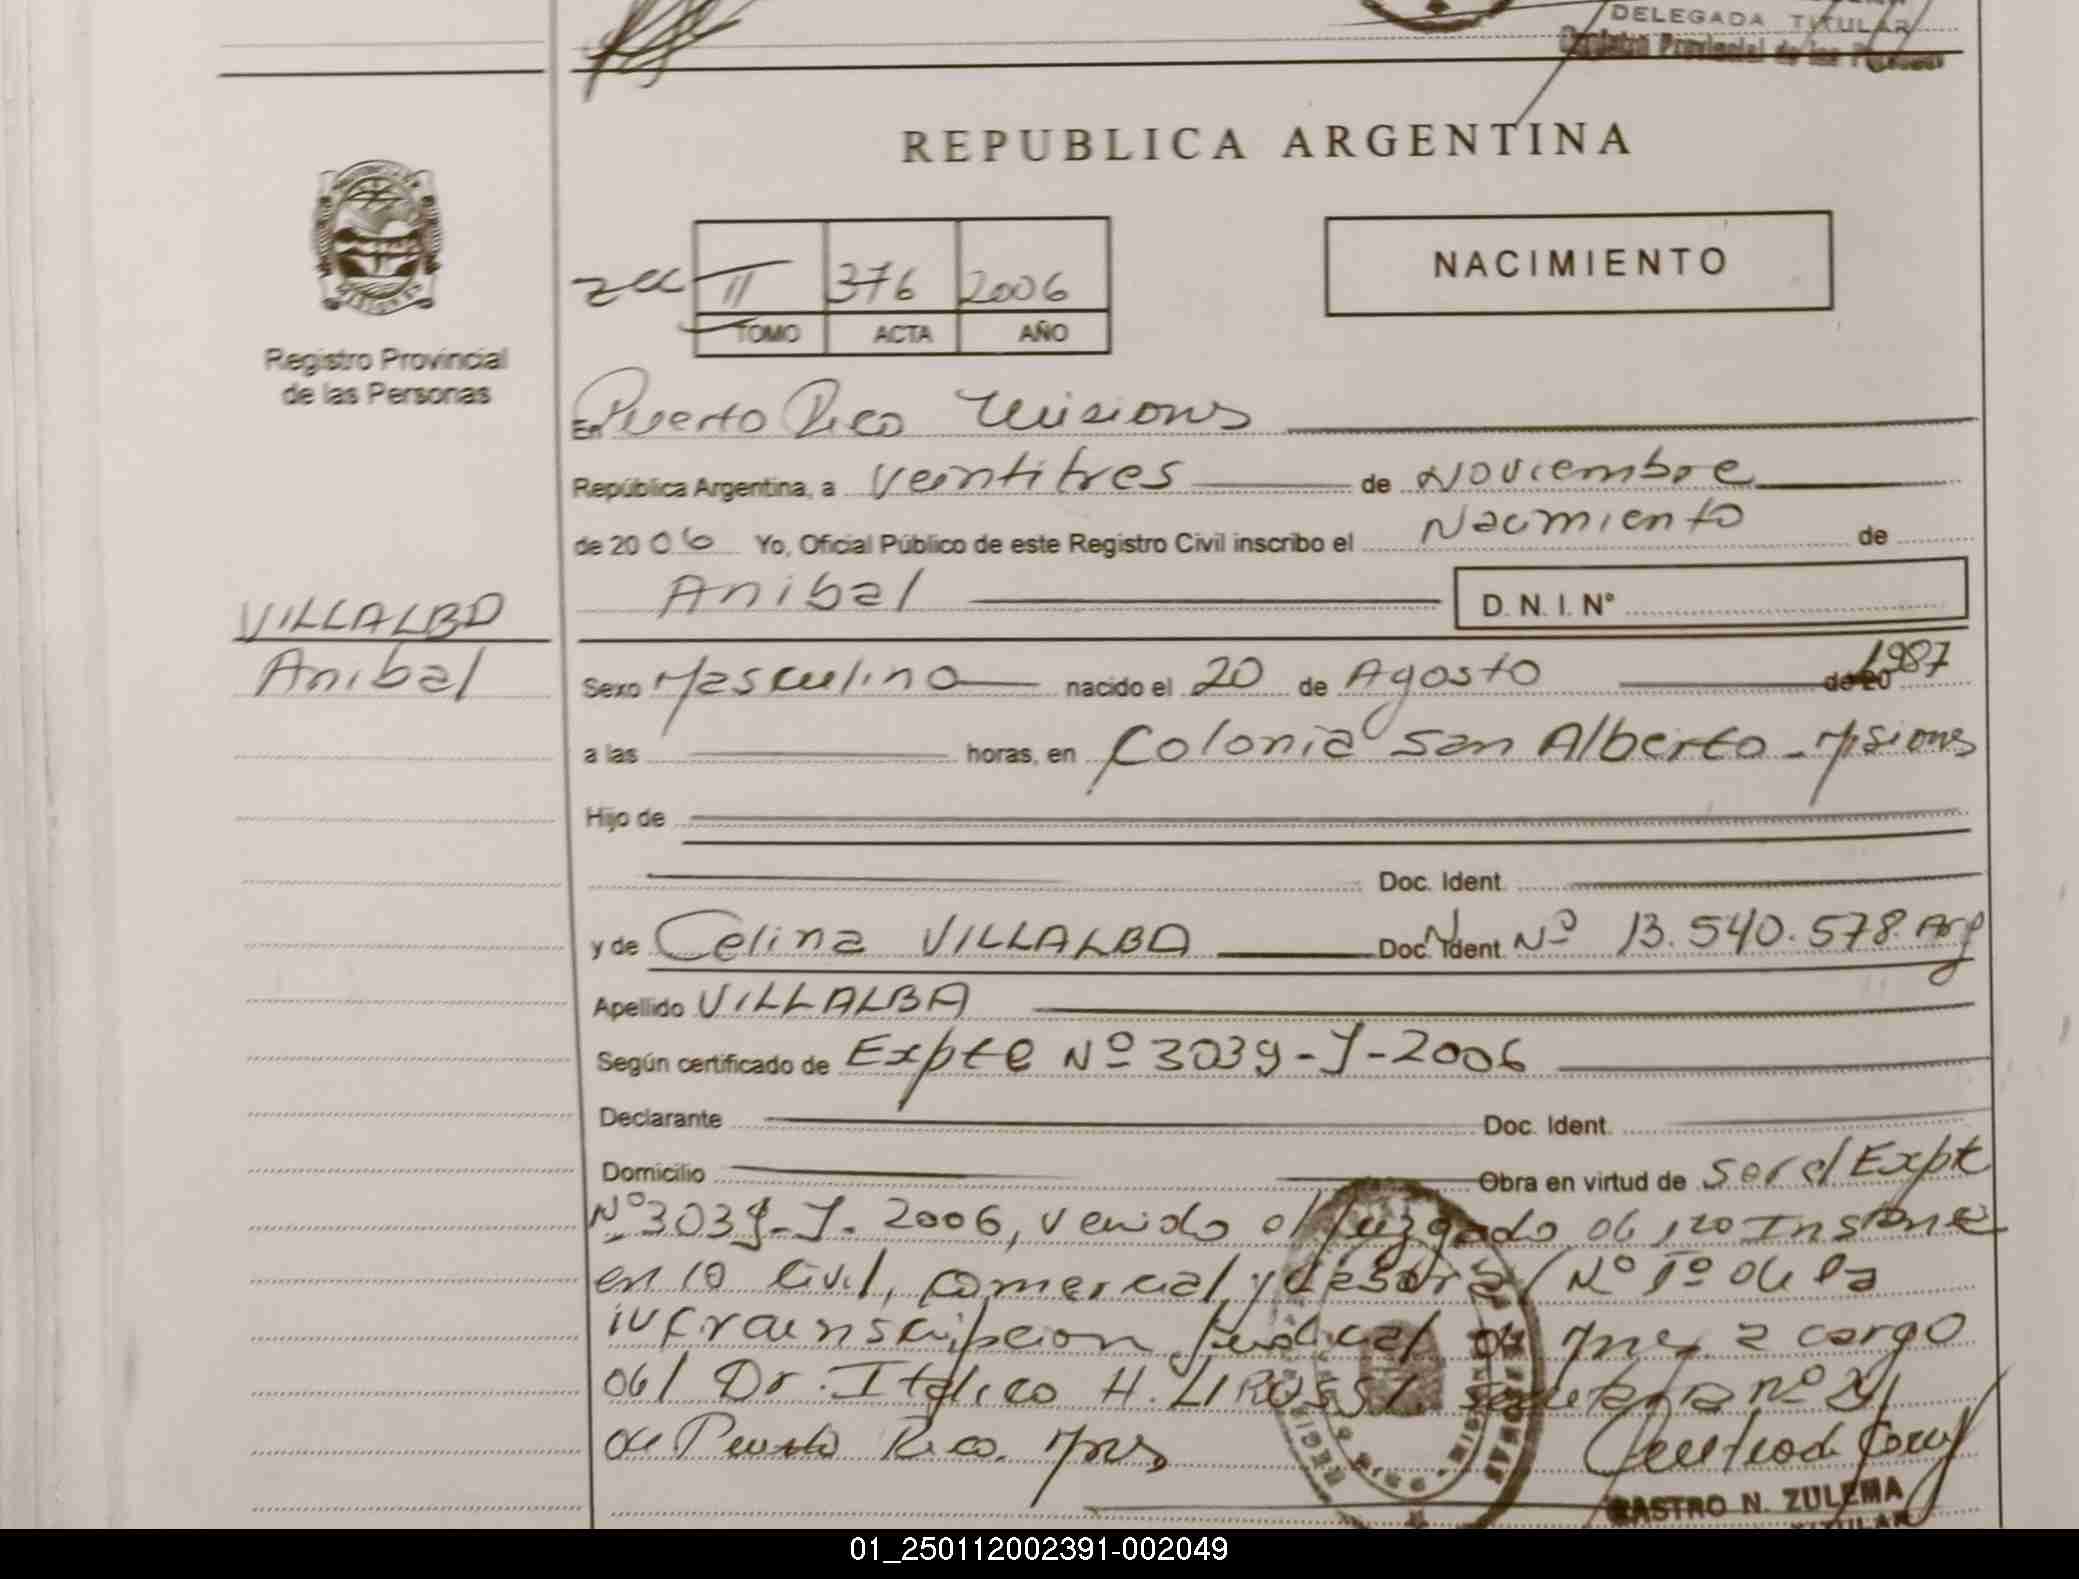 DELEGADA TITULAR
Registro Provincial de las Personas
REPUBLICA ARGENTINA
II 376 2006
TOMO ACTA AÑO
NACIMIENTO
Registro Provincial
de las Personas
En Puerto Rico Misiones
República Argentina, a Veintitres de Noviembre
de 2006 Yo, Oficial Público de este Registro Civil inscribo el Nacimiento de
Anibal D. N. I. Nº
VILLALBA
Anibal
Sexo Masculino nacido el 20 de Agosto de 20 1987
a las horas, en Colonia San Alberto - Misiones
Hijo de
Doc. Ident.
y de Celina VILLALBA Doc. Ident. Nº 13.540.578 Arg
Apellido VILLALBA
Según certificado de Expte Nº 3039-J-2006
Declarante Doc. Ident.
Domicilio Obra en virtud de Ser el Expte
Nº 3039-J-2006, venido del Juzgado de 1ro Instancia
en lo Civil, Comercial y Laboral Nº 1º de la
Judicial de Mnes a cargo
del Dr. Italico H. LIROSSI secretaria nº 2,
de Puerto Rico. Mnes
CASTRO N. ZULEMA
TITULAR
01_250112002391-002049